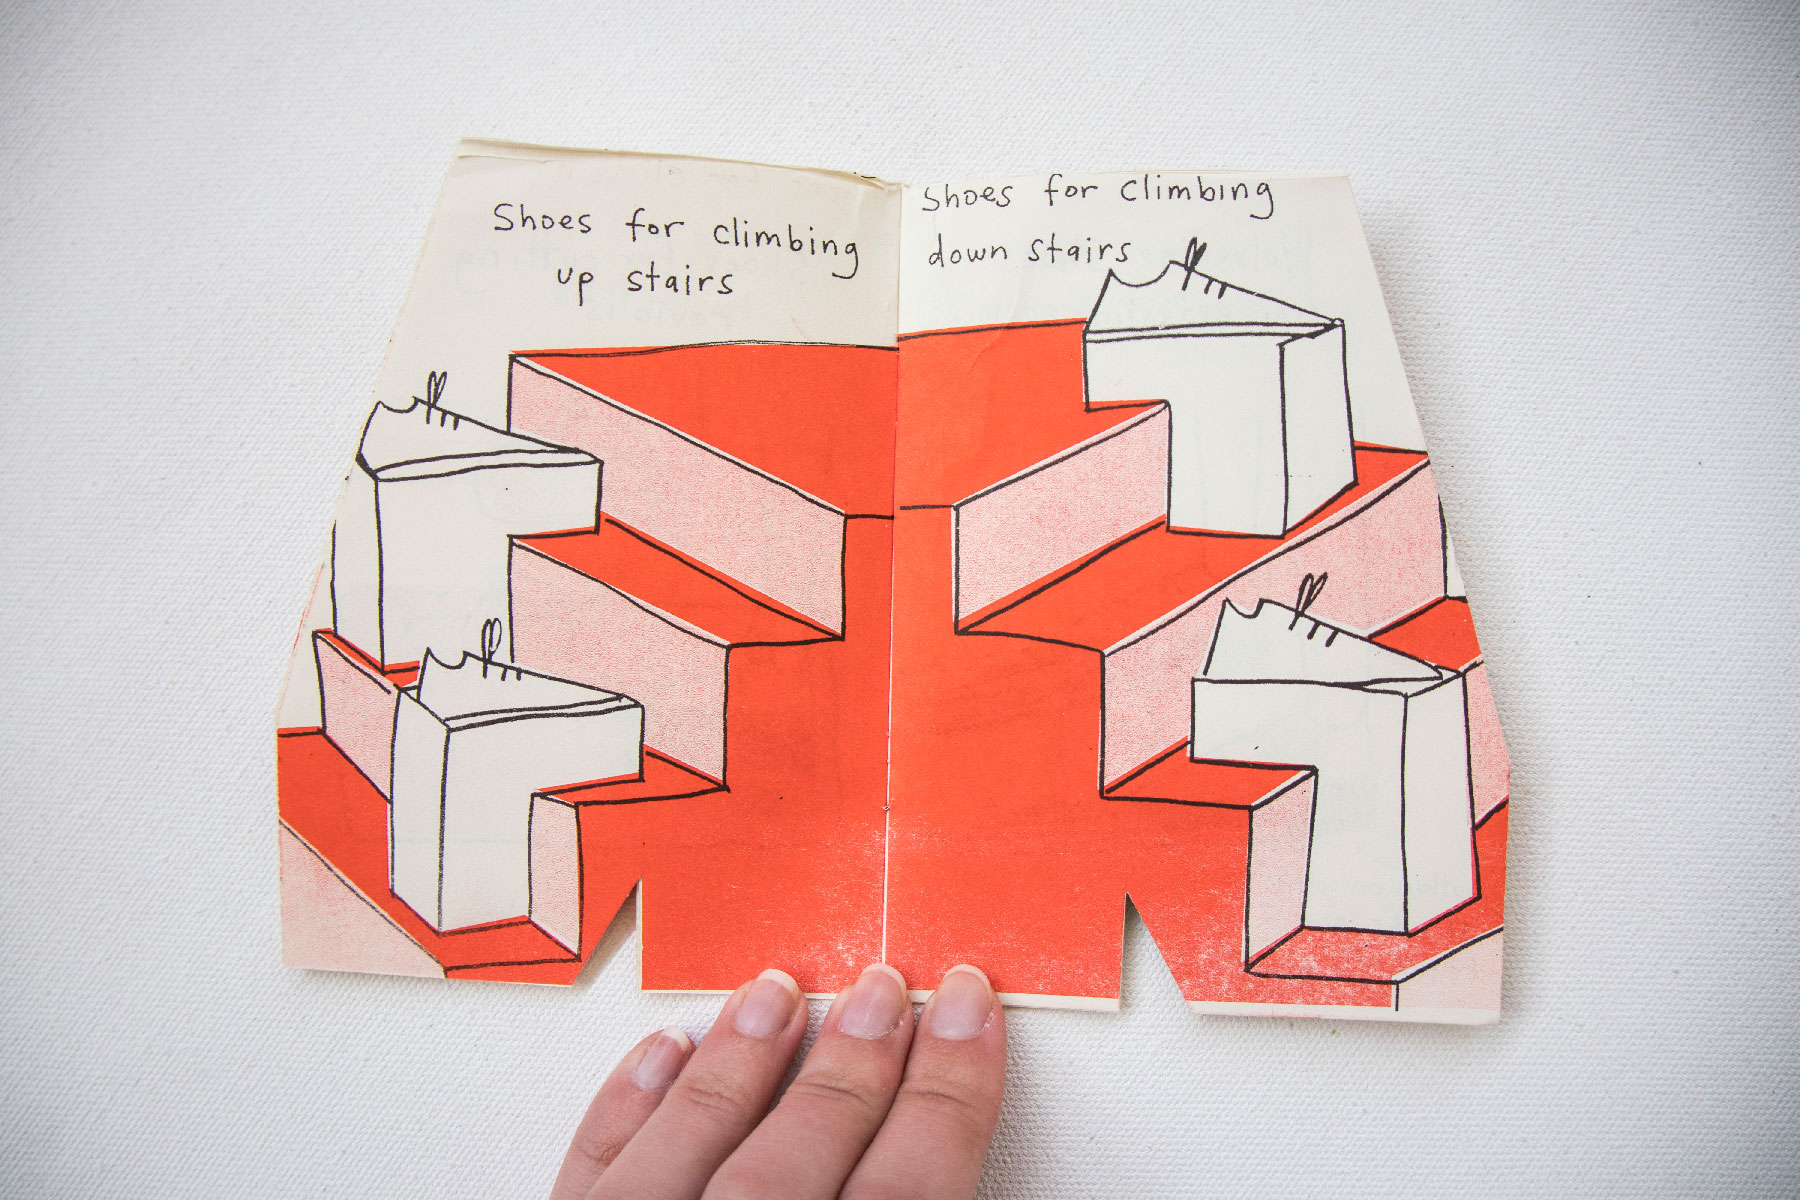 Shoes for climbing
up stairs
Shoes for climbing
down stairs